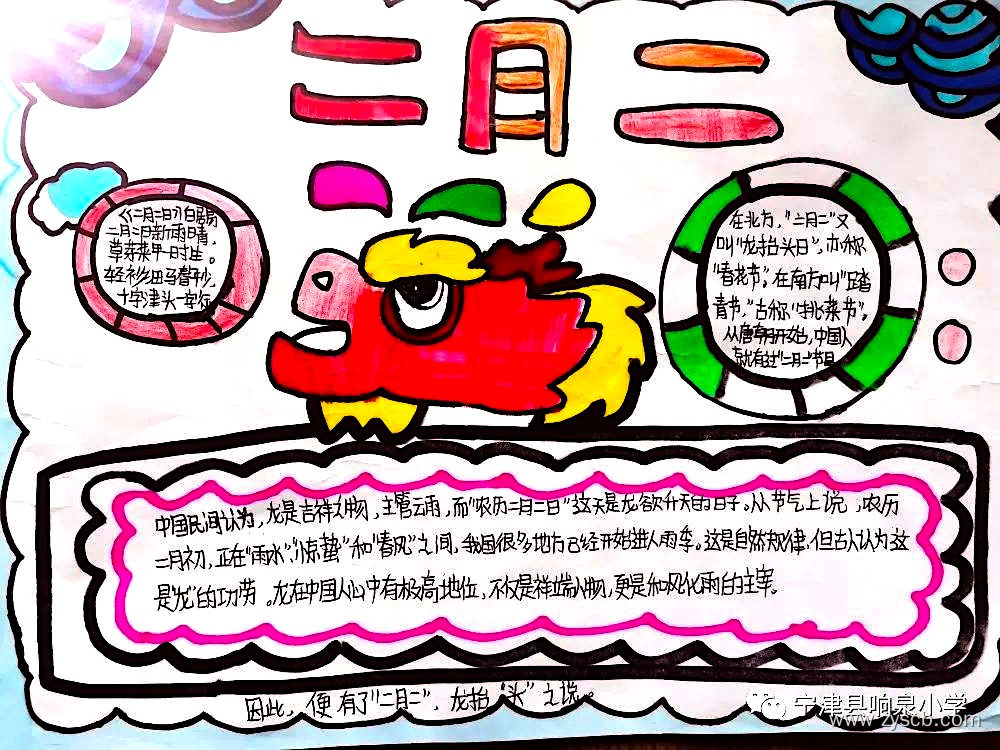 二月二
《二月二日》白居易
二月二日新雨晴，
草芽菜甲一时生。
轻衫细马春年少，
十字津头一字行
在北方，"二月二"又
叫"龙抬头日"，亦称
"春龙节"。在南方叫"踏
青节"，古称"挑菜节"。
从唐朝开始，中国人
就有过"二月二"节日
中国民间认为，龙是吉祥之物，主管云雨，而"农历二月二日"这天是龙欲升天的日子。从节气上说，农历
二月初，正在"雨水"、"惊蛰"和"春风"之间，我国很多地方已经开始进入雨季。这是自然规律，但古人认为这
是"龙"的功劳。龙在中国人心中有极高地位，不仅是祥端之物，更是和风化雨的主宰。
因此，便有了"二月二"，龙抬"头"之说。
宁津县响泉小学
www.zyscb.com